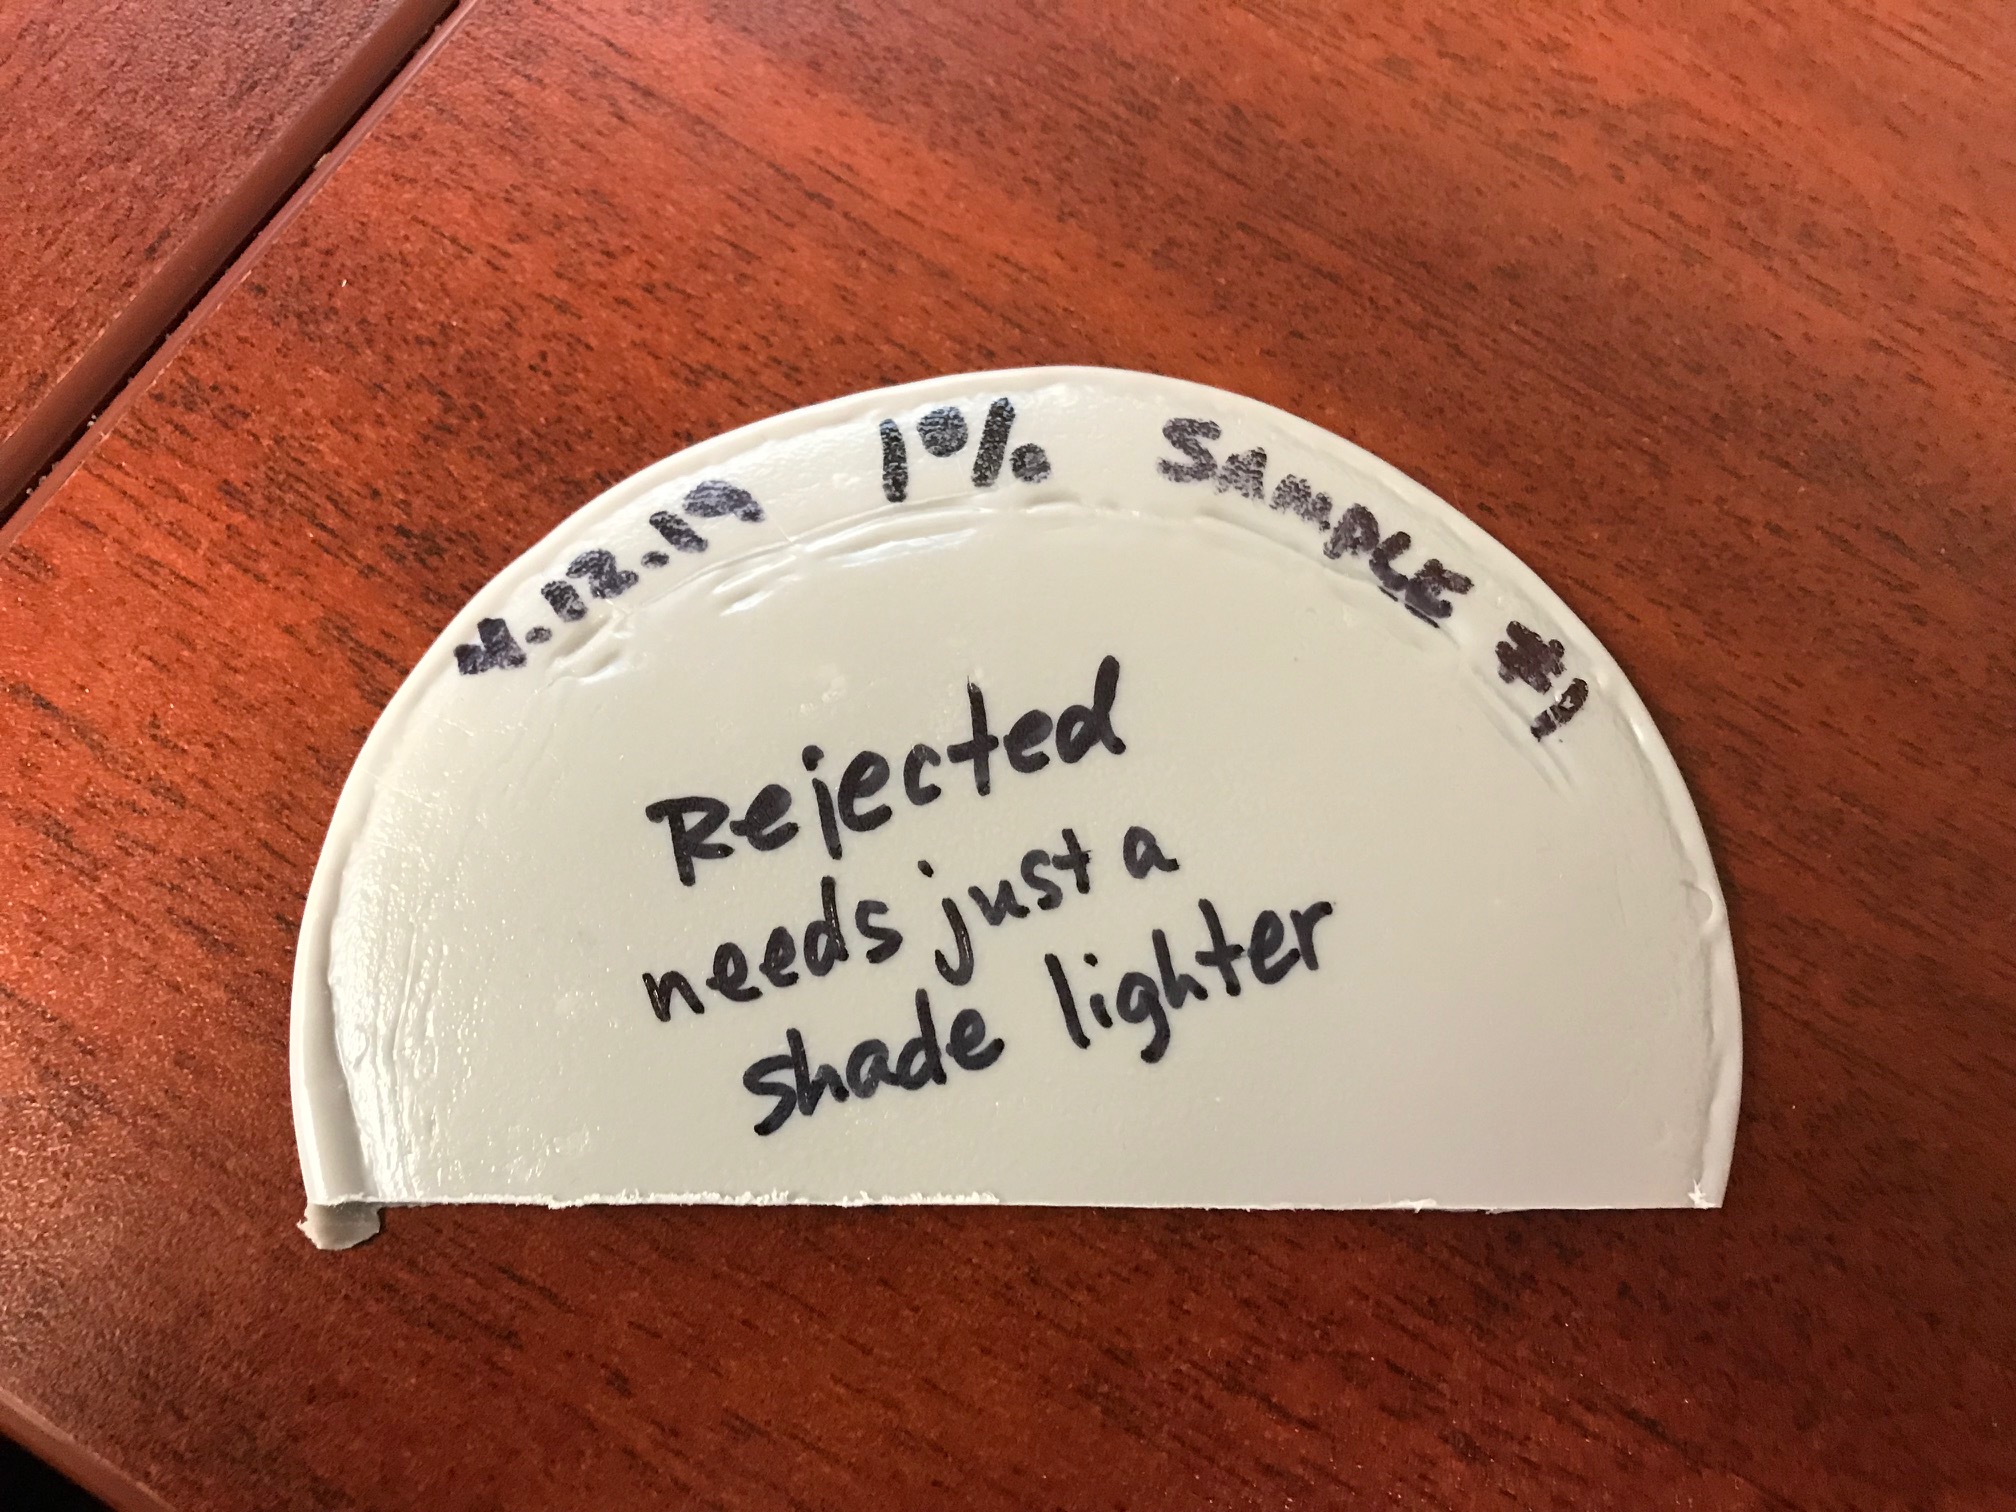 4.12.19 1% SAMPLE #1
Rejected
needs just a
shade lighter